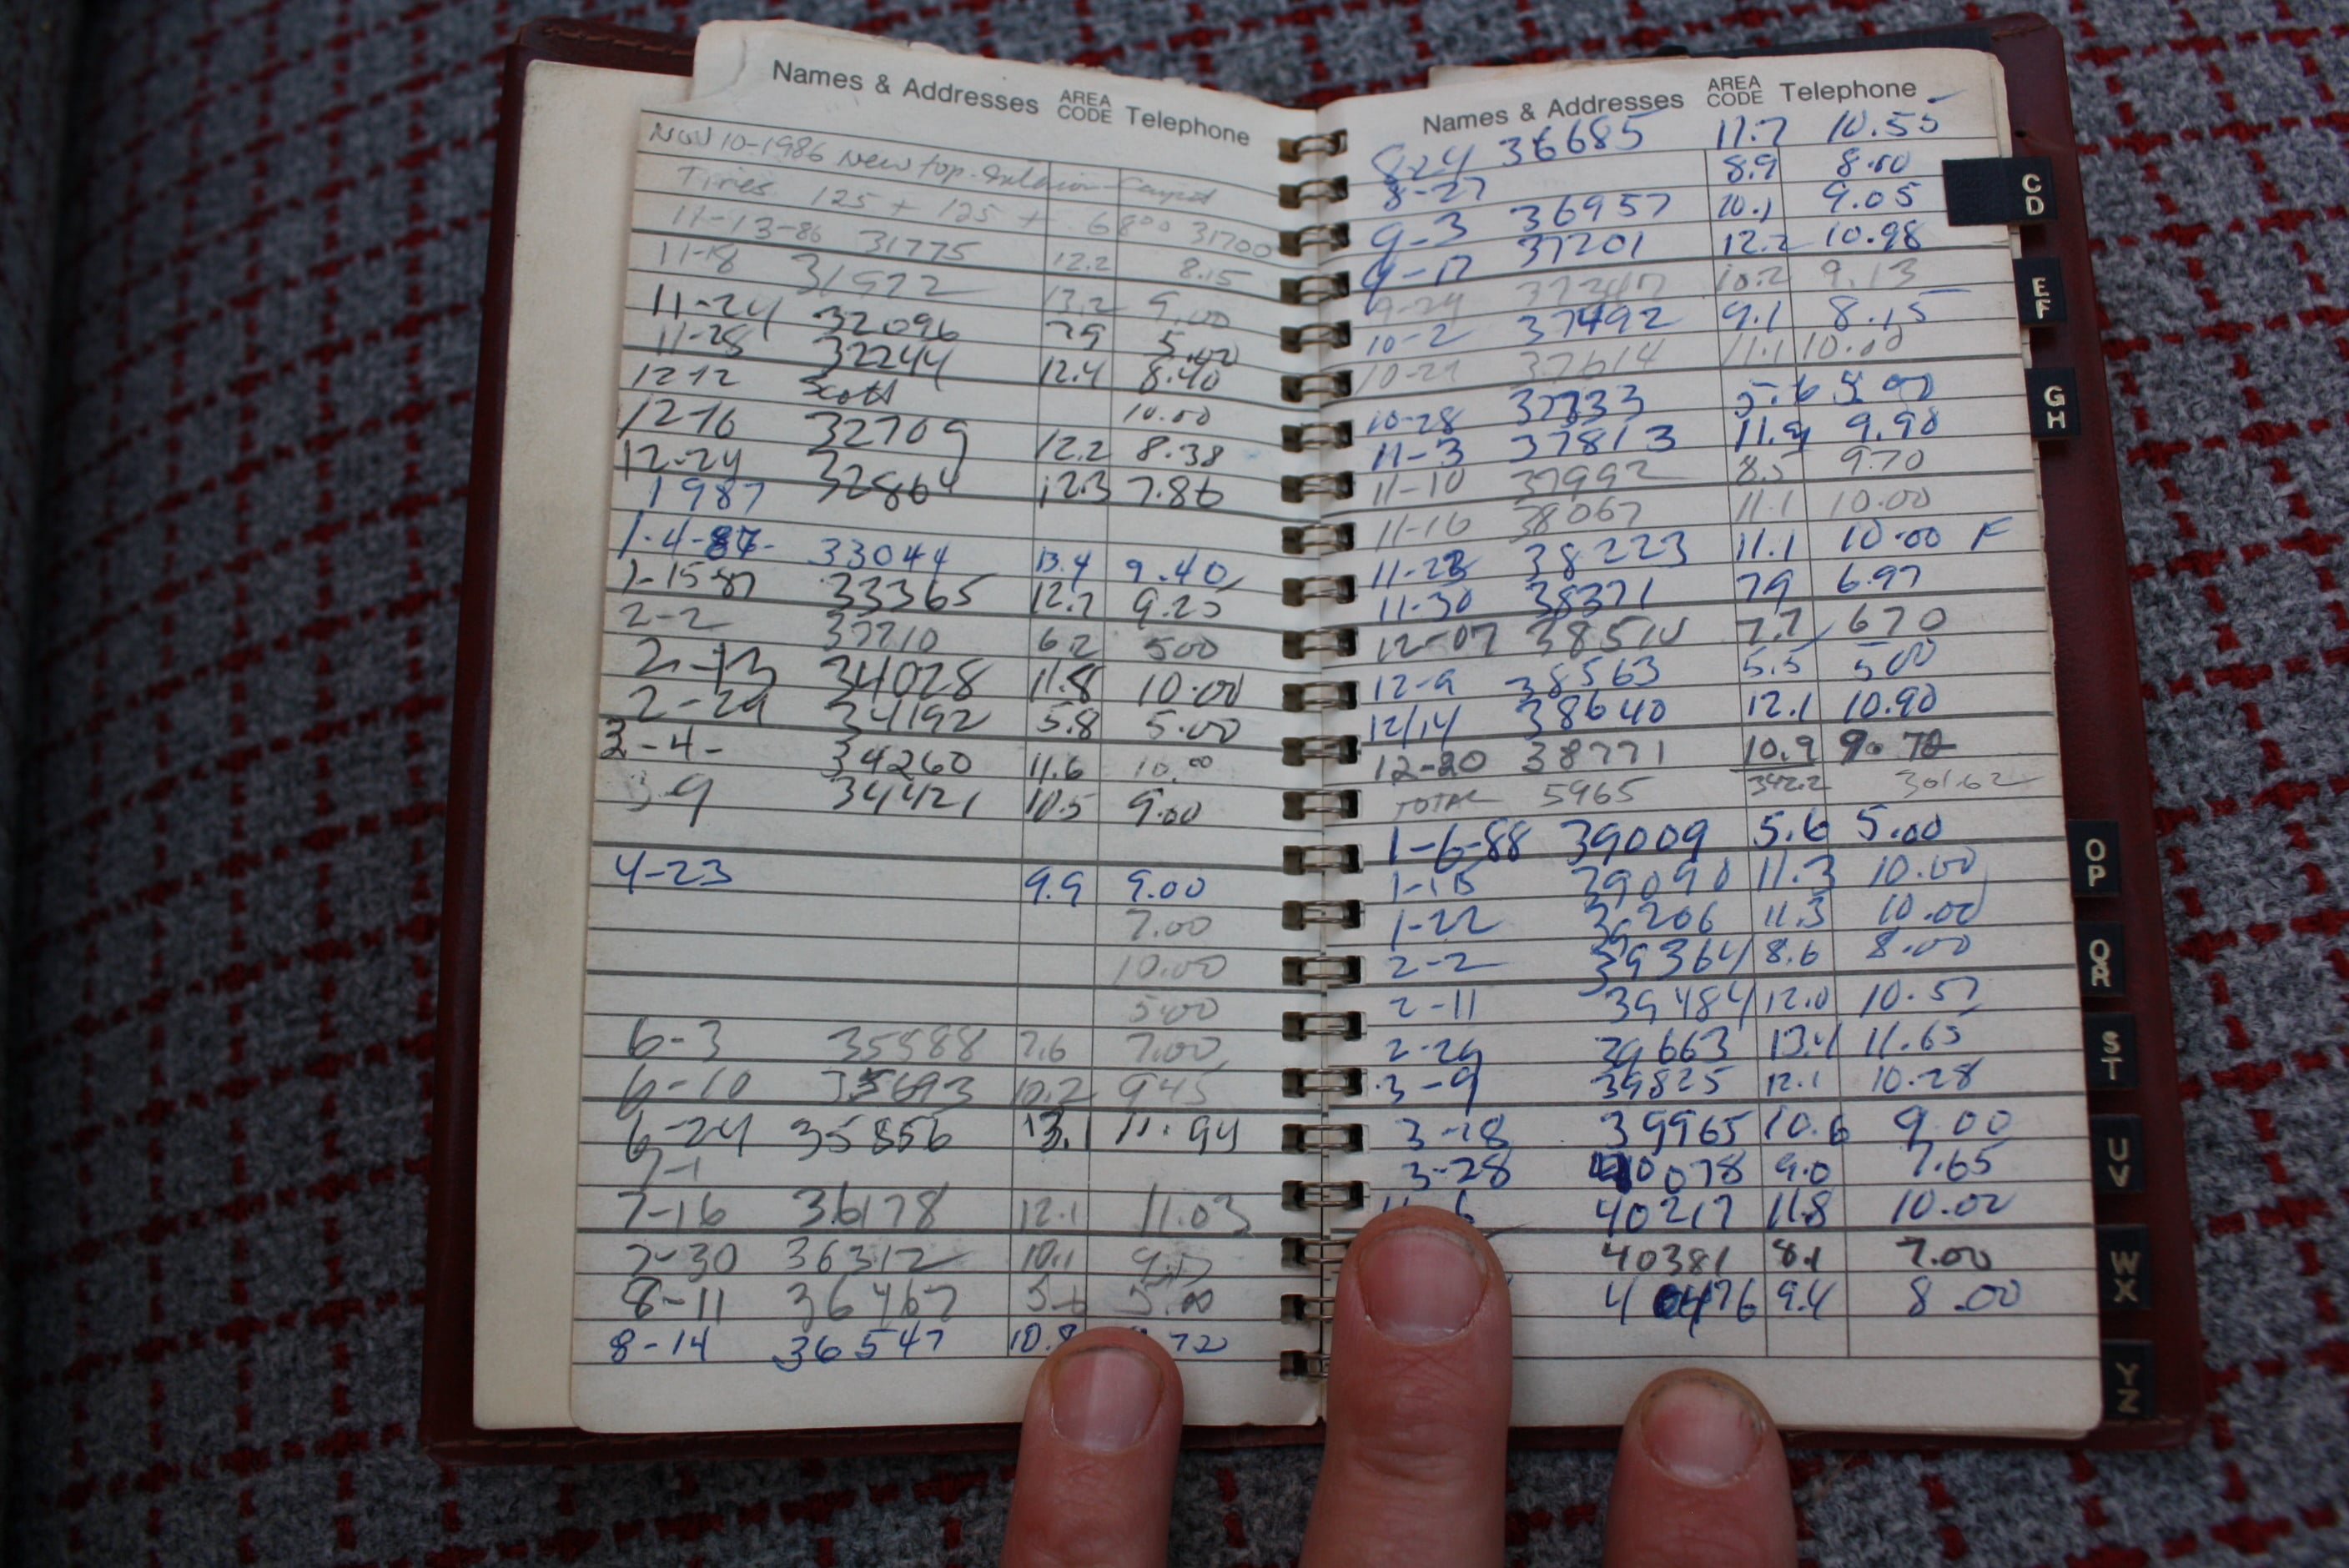 Names & Addresses AREA CODE Telephone
Nov 10-1986 New top-
Tires 125 + 125 + 6800 31700
11-13-86 31775 12.2 8.15
11-18 31922 13.2 9.00
11-24 32096 79 5.00
11-28 32244 12.4 8.40
12-12 Scott 10.00
12-16 32709 12.2 8.38
12-24 32864 12.3 7.86
1987
1-4-87- 33044 13.4 9.40
1-15 87 33365 12.7 9.25
2-2 6.2 500
2-13 34028 11.8 10.00
2-29 34192 5.8 5.00
3-4- 34260 11.6 10.00
3-9 34421 10.5 9.00
4-23 9.9 9.00
7.00
10.00
5.00
6-3 35588 7.6 7.00
6-10 35693 10.2 945
6-24 35856 13.1 11.94
7-1
7-16 36178 12.1 11.03
7-30 36312 10.1
8-11 36467 5.6 5.00
8-14 36547 10.8 72
Names & Addresses AREA CODE Telephone
8-24 36685 11.7 10.55
8-27 8.9 8.00
9-3 36957 10.1 9.05
9-17 37201 12.2 10.98
9-24 37347 10.2 9.13
10-2 37492 9.1 8.15
10-21 37614 11.1 10.00
10-28 37733 5.6 5.00
11-3 37813 11.9 9.98
11-10 37992 8.5 9.70
11-16 38067 11.1 10.00
11-23 38223 11.1 10.00 F
11-30 38371 79 6.97
12-07 38510 7.7 670
12-9 38563 5.5 500
12/14 38640 12.1 10.90
12-20 38771 10.9 9.72
TOTAL 5965 342.2 301.62
1-6-88 39009 5.6 5.00
1-15 39090 11.3 10.00
1-22 39206 11.3 10.00
2-2 39364 8.6 8.00
2-11 39484 12.0 10.57
2-26 39663 13.4 11.65
3-9 39825 12.1 10.28
3-18 39965 10.6 9.00
3-28 40078 9.0 7.65
6 40217 11.8 10.00
40381 8.1 7.00
40476 9.4 8.00
C D
E F
G H
O P
Q R
S T
U V
W X
Y Z